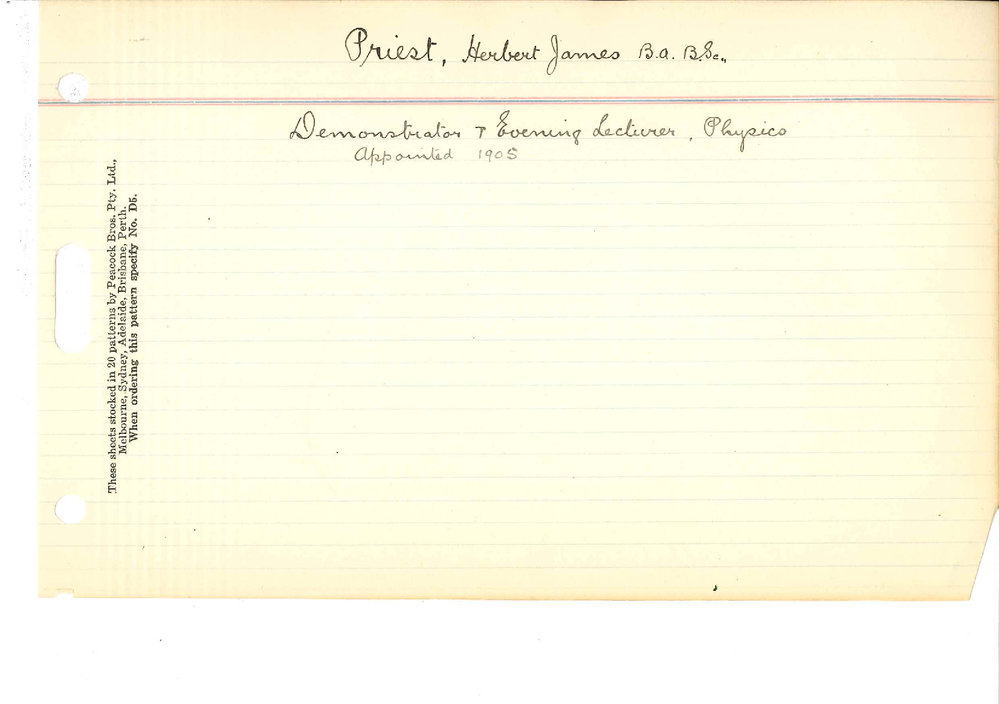 Priest, Herbert James B.A. B.Sc.,
Demonstrator & Evening Lecturer, Physics
Appointed 1905
These sheets stocked in 20 patterns by Peacock Bros. Pty. Ltd.,
Melbourne, Sydney, Adelaide, Brisbane, Perth.
When ordering this pattern specify No. D5.